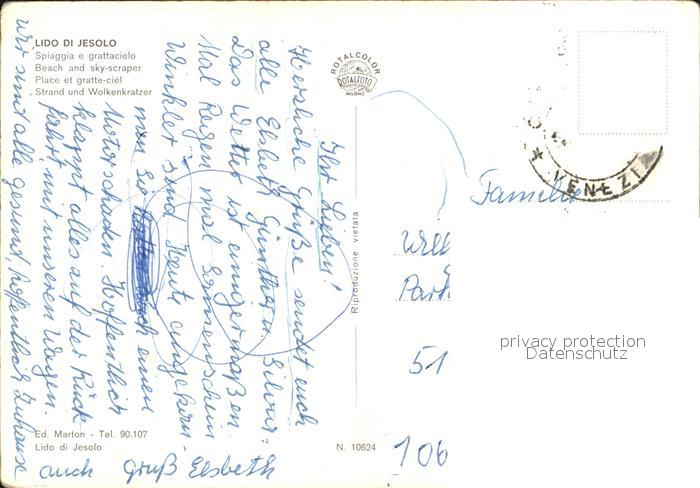 LIDO DI JESOLO
Spiaggia e grattacielo
Beach and sky-scraper
Place et gratte-ciel
Strand und Wolkenkratzer
ROTALCOLOR
ROTALFOTO
MILANO
VENEZIA
Ihr Lieben!
Herzliche Grüße sendet euch
alle Elsbeth Günther u. Silvia:
Das Wetter ist einigermaßen.
Mal Regen mal Sonnenschein
Winkler sind heute angekom-
men Sie hatten auch einen
Motorschaden. Hoffentlich
klappt alles auf der Rück-
fahrt mit unseren Wagen.
Wir sind alle gesund, hoffentlich Zuhause
auch Gruß Elsbeth
Riproduzione vietata
Familie
Will
Park
51
106
privacy protection
Datenschutz
Ed. Marton - Tel. 90.107
Lido di Jesolo
N. 10624